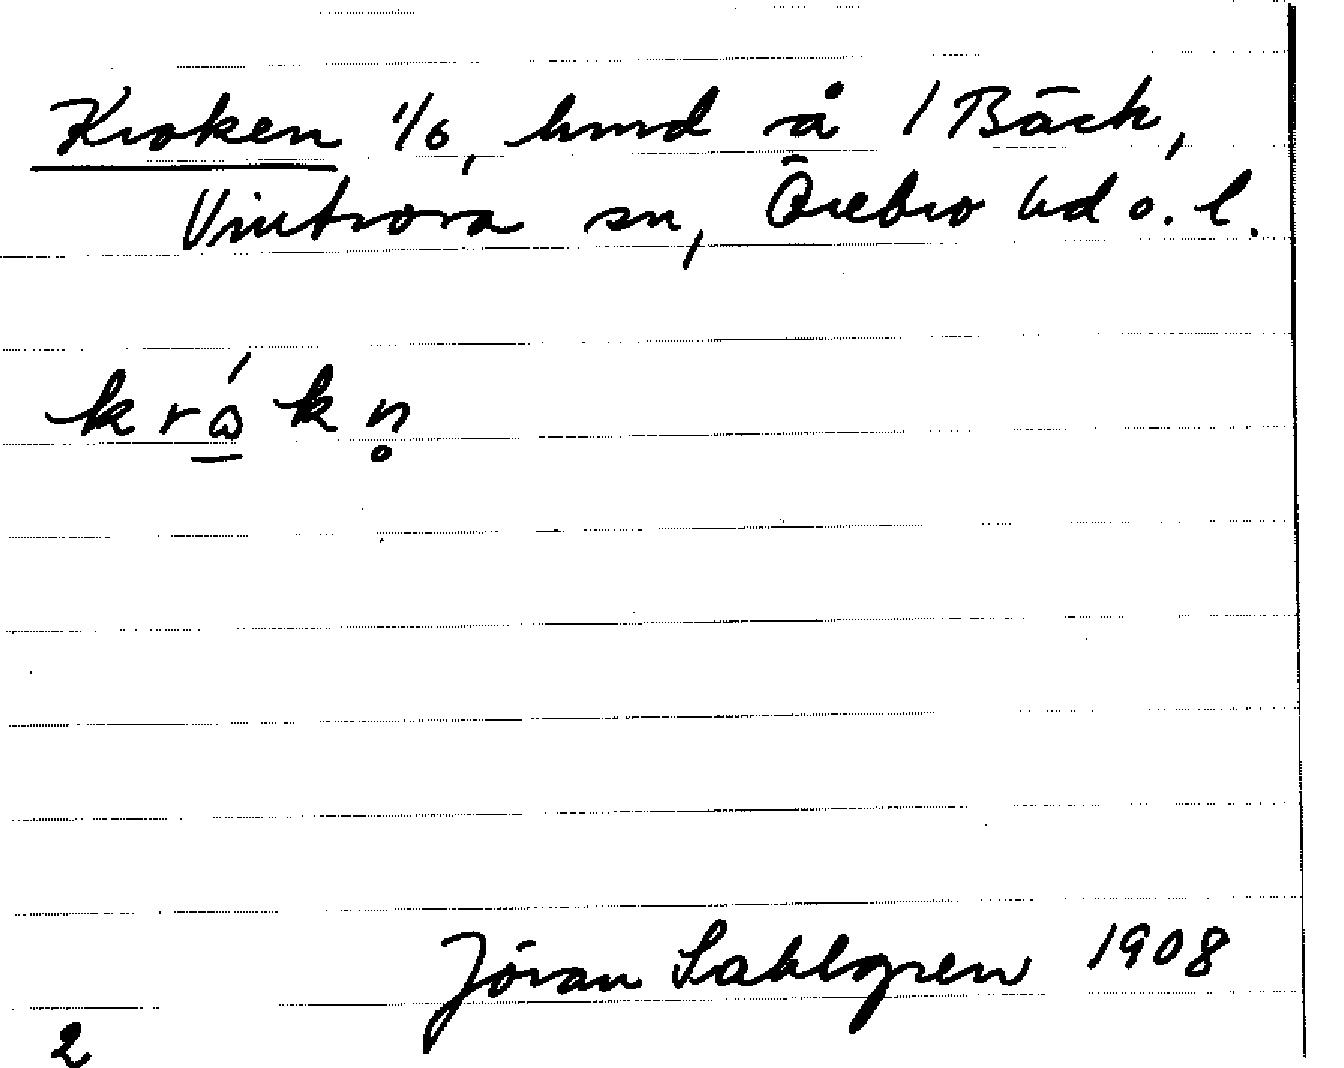 Kroken 1/6, hmd å 1 Bäck,
Vintrosa sn, Örebro hd o. l.
krɷ́kn̥
Jöran Sahlgren 1908
2